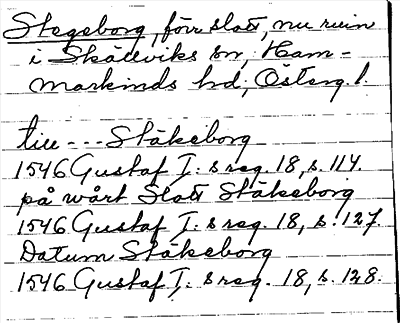 Stegeborg, förr slott, nu ruin
i Skällviks sn, Ham-
markinds hd, Österg. l.
till --- Stäkeborg
1546 Gustaf I: s reg. 18, s. 114.
på wårt Slott Stäkeborg
1546 Gustaf I: s reg. 18, s. 127.
Datum Stäkeborg
1546 Gustaf I: s reg. 18, s. 128.